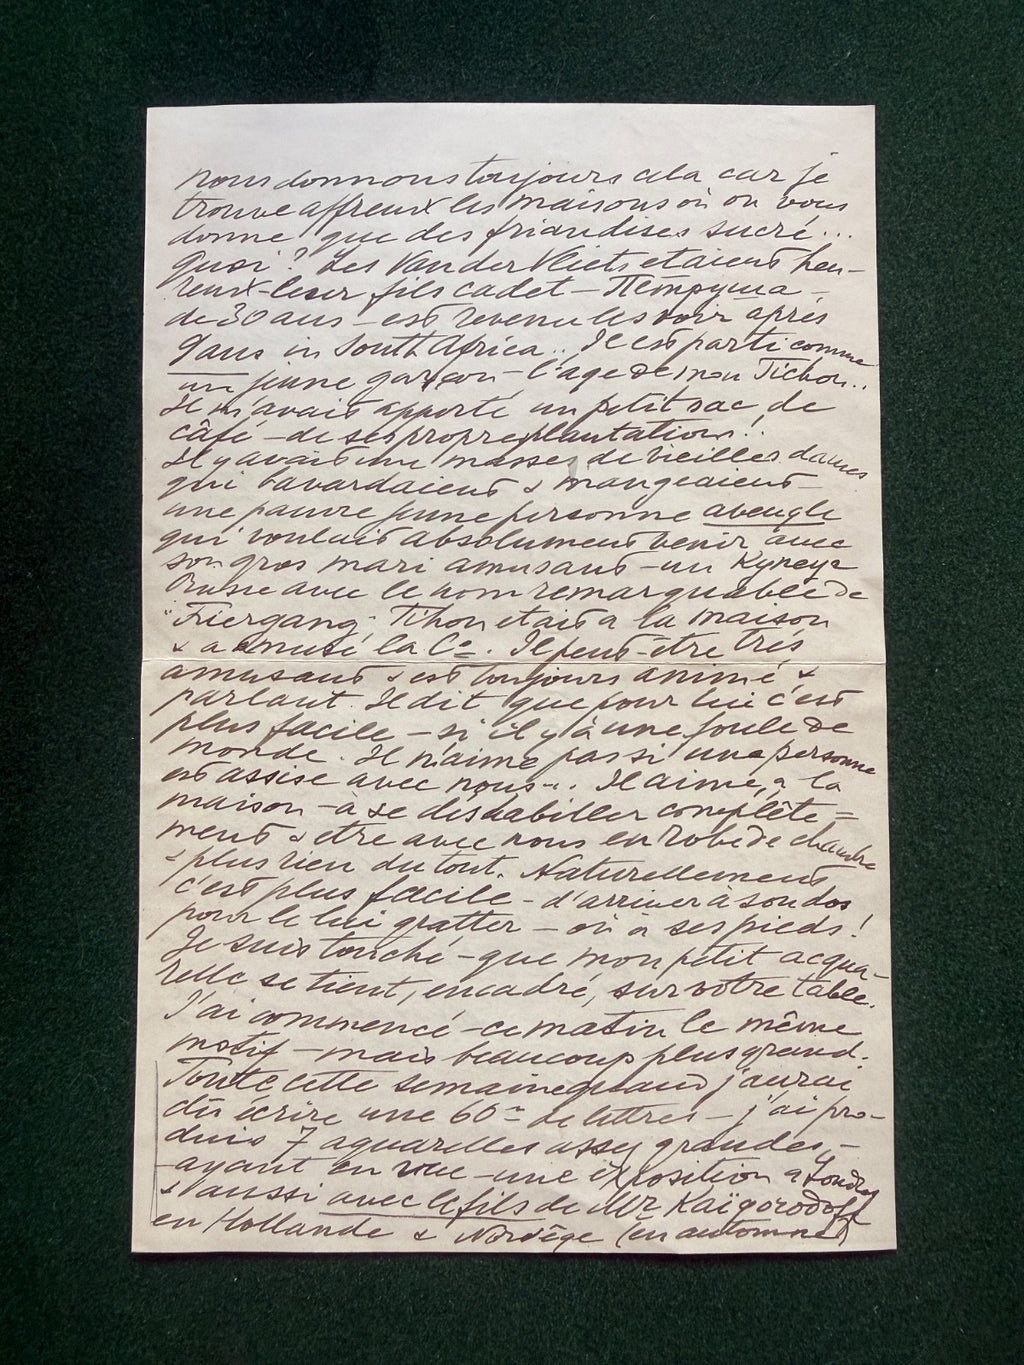 nous donnons toujours cela car je
trouve affreux les maisons où on vous
donne que des friandises sucré...
Quoi? Les Van der Vliets etaient heu-
reux - leur fils cadet - Петруша -
de 30 ans - est revenu les voir après
9 ans in South Africa.. Il est parti comme
un jeune garçon - l'age de mon Tichon..
Il m'avait apporté un petit sac de
câfé - de ses propre plantations!.
Il y avait une masse de vieilles dames
qui bavardaient & mangeaient -
une pauvre jeune personne aveugle
qui voulait absolument venir avec
son gros mari amusant - un
Russe avec le nom remarquable de
"Fiergang". Tihon etait a la maison
& a amusé la Co. Il peut-être très
amusant & est toujours animé &
parlant. Il dit que pour lui c'est
plus facile - si il y a une foule de
monde. Il n'aime pas si une personne
est assise avec nous... Il aime, a la
maison - à se déshabiller complête=
ment & etre avec nous en robe de chambre
& plus rien du tout. Naturellement
c'est plus facile - d'arriver à son dos
pour le lui gratter - où à ses pieds!
Je suis touché - que mon petit acqua-
relle se tient, encadré, sur votre table.
J'ai commencé - ce matin le même
motif - mais beaucoup plus grand.
Toute cette semaine quand j'aurai
dû écrire une 60ne de lettres - j'ai pro-
duis 7 aquarelles assez grandes, -
ayant en vue - une exposition a Londres
& aussi avec le fils de Mr Kaïgorodoff
en Hollande & Norvège (en automne)